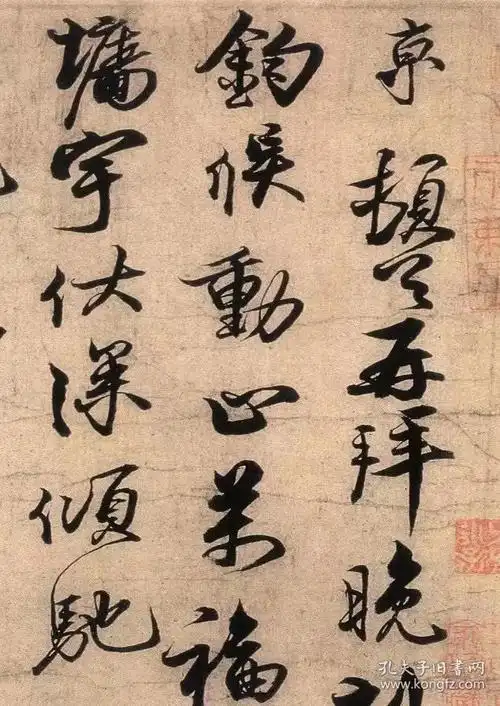 京頓首再拜晚
鈞候動止萬福
墻宇伏深傾馳
孔夫子旧书网
www.kongfz.com